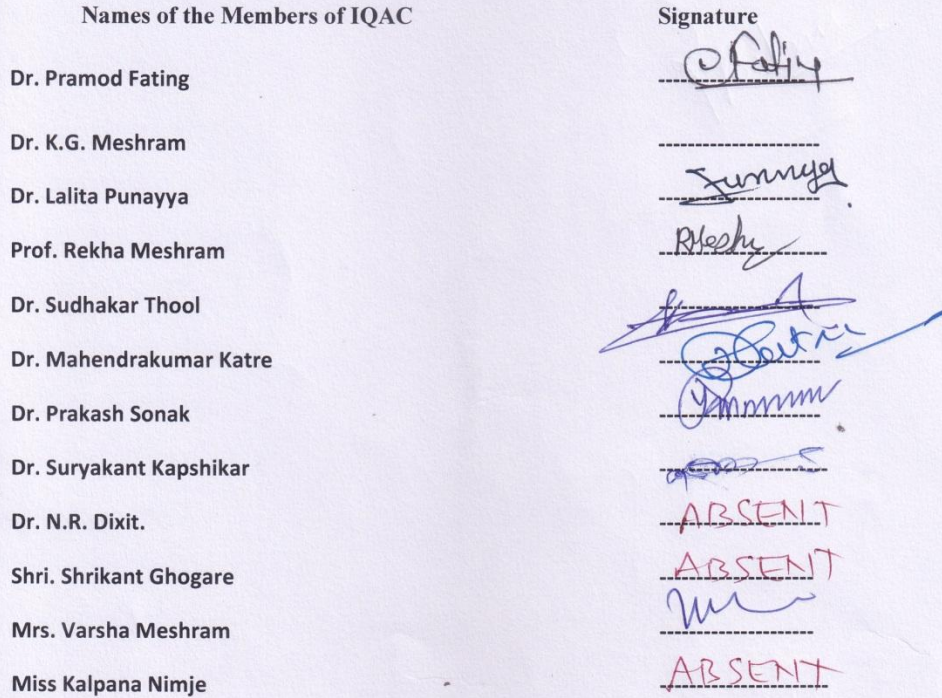 Names of the Members of IQAC Signature
Dr. Pramod Fating
Dr. K.G. Meshram
Dr. Lalita Punayya
Prof. Rekha Meshram
Dr. Sudhakar Thool
Dr. Mahendrakumar Katre
Dr. Prakash Sonak
Dr. Suryakant Kapshikar
Dr. N.R. Dixit. ABSENT
Shri. Shrikant Ghogare ABSENT
Mrs. Varsha Meshram
Miss Kalpana Nimje ABSENT